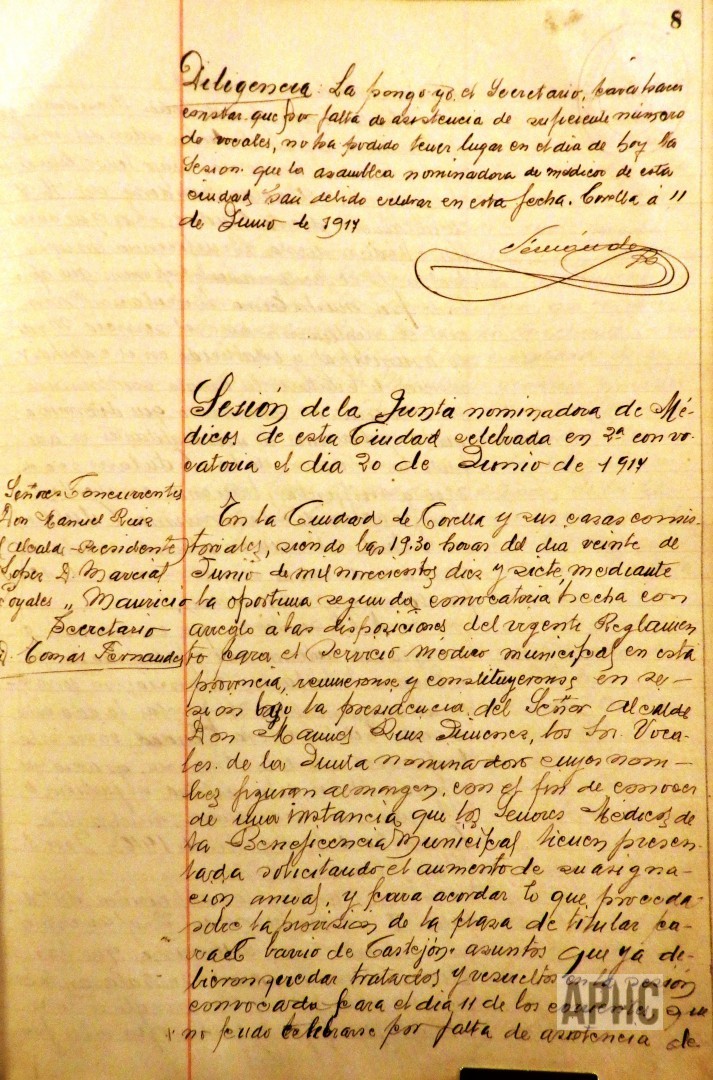 8
Diligencia: La pongo yo, el Secretario, para hacer
constar que por falta de asistencia de suficiente número
de vocales, no ha podido tener lugar en el dia de hoy la
Sesion que la asamblea nominadora de medicos de esta
ciudad han debido celebrar en esta fecha. Corella á 11
de Junio de 1917
Fernández
Sesión de la Junta nominadora de Mé-
dicos de esta Ciudad celebrada en 2ª convo-
catoria el dia 20 de Junio de 1917
Señores Concurrentes
Don Manuel Ruiz
(Alcalde-Presidente)
Lopez D. Marcial
" Mauricio
Secretario
D. Tomas Fernandez
En la Ciudad de Corella y sus casas consis-
toriales, siendo las 19.30 horas del dia veinte de
Junio de mil novecientos diez y siete, mediante
la oportuna segunda convocatoria hecha con
arreglo a las disposiciones del vigente Reglamen
to para el Servicio médico municipal en esta
provincia, reunieronse y constituyeronse en se-
sion bajo la presidencia del Señor Alcalde
Don Manuel Ruiz Jimenez, los Sres. Voca-
les de la Junta nominadora cuyos nom-
bres figuran al margen, con el fin de conocer
de una instancia que los Señores Médicos de
la Beneficencia Municipal tienen presen-
tada solicitando el aumento de su asigna-
cion anual, y para acordar lo que proceda
sobre la provision de la plaza de titular pa-
ra el barrio de Castejón. asuntos que ya de-
bieron quedar tratados y resueltos en la sesión
convocada para el dia 11 de los corrientes que
no pudo celebrarse por falta de asistencia de
APHC